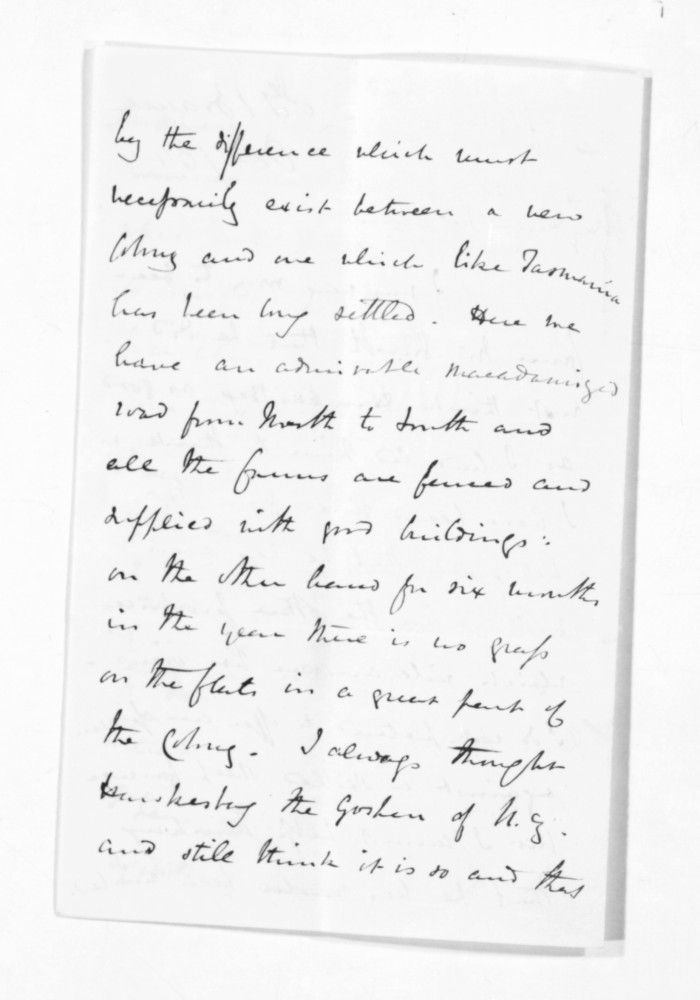 by the difference which must
necessarily exist between a new
Colony and one which like Tasmania
has been long settled. Here we
have an admirable macadamized
road from North to South and
all the farms are fenced and
supplied with good buildings:
on the other hand for six months
in the year there is no grass
on the flats in a great part of
the Colony. I always thought
the Goshen of N.Z.
and still think it is so and that